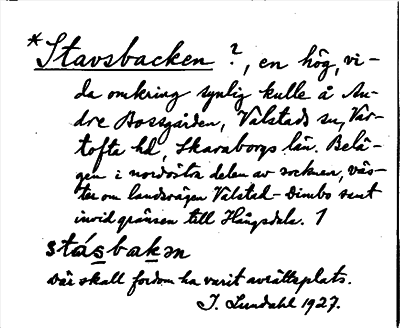 *Stavsbacken ?, en hög, vi-
da omkring synlig kulle å An-
dre Bossgården, Valstads sn, Var-
tofta hd, Skaraborgs län. Belä-
gen i nordöstra delen av socknen, väs-
ter om landsvägen Valstad-Dimbo samt
invid gränsen till Hångsdala. 1
stásbakən
där skall fordom ha varit avrättsplats.
J. Lundahl 1927.